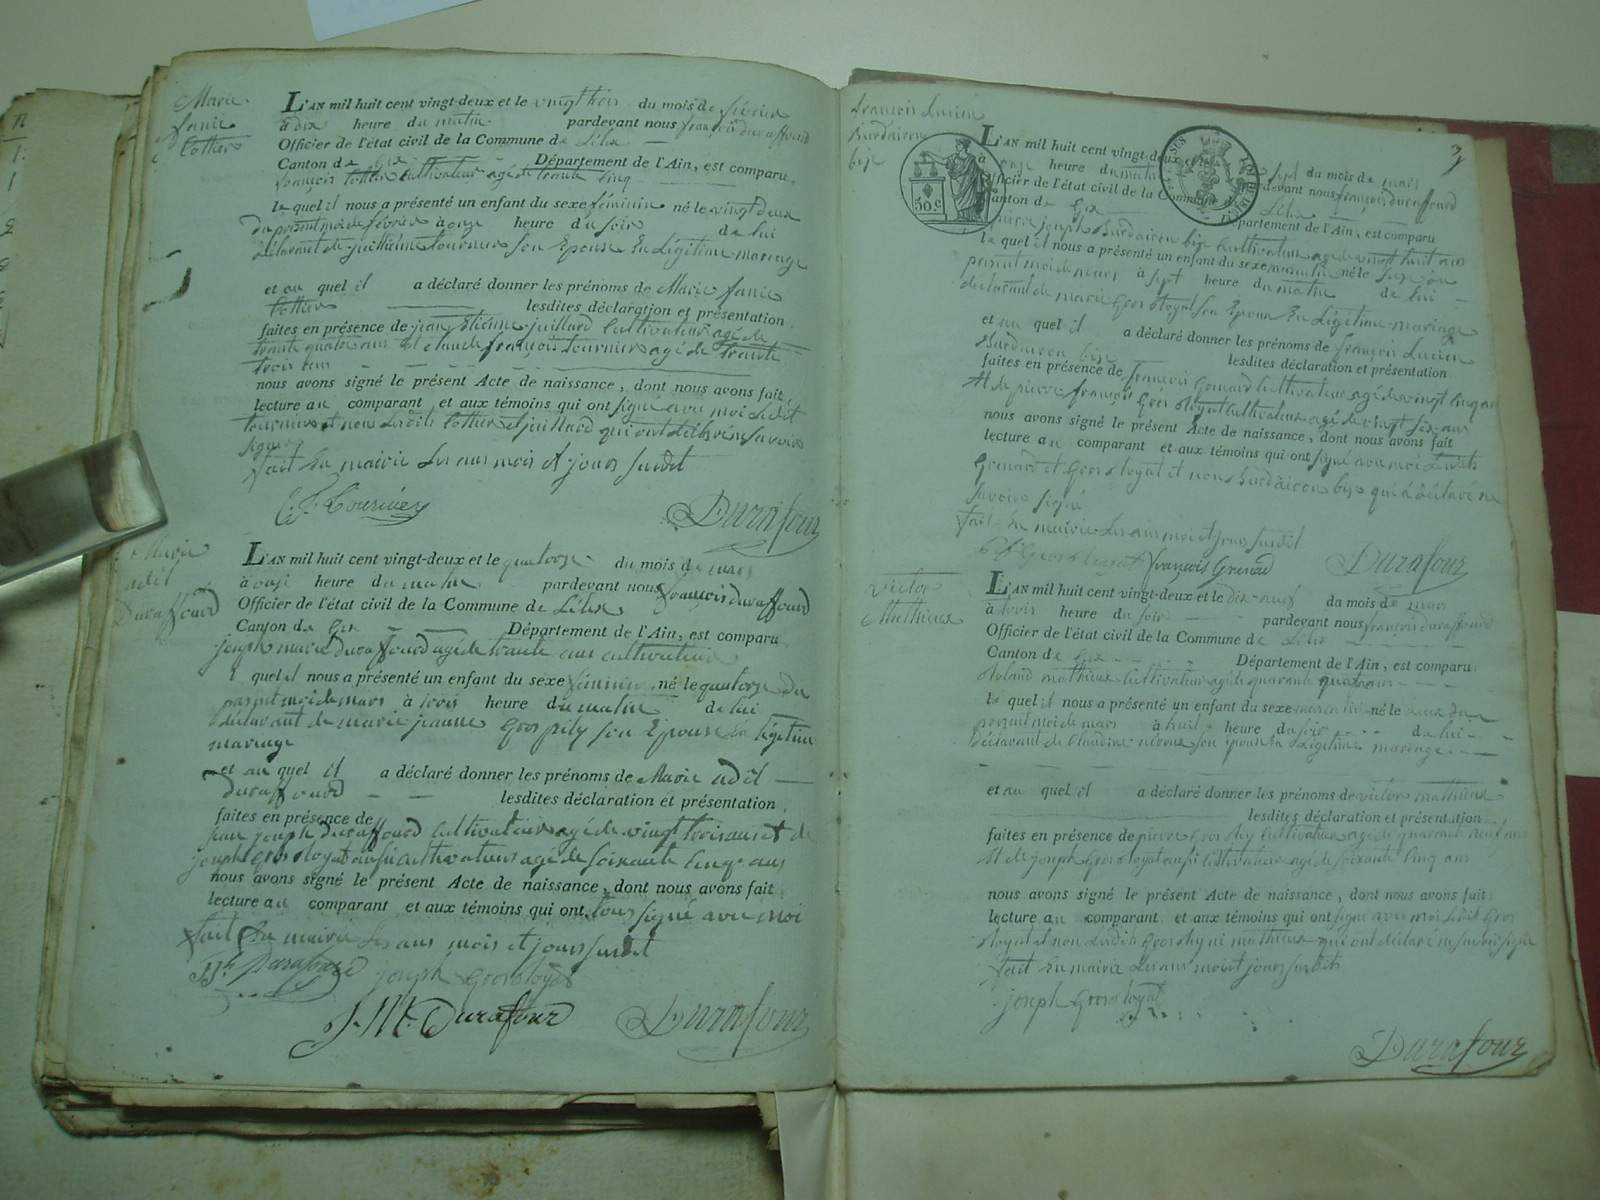 Marie
fanie
Cottier
L'AN mil huit cent vingt-deux et le vingt trois du mois de février
à dix heure du matin pardevant nous françois duraffourd
Officier de l'état civil de la Commune de Lélex
Canton de Gex Département de l'Ain, est comparu
françois Cottier Cultivateur agé de trante cinq
le quel il nous a présenté un enfant du sexe féminin né le vingt deux
du présent moi de février à onze heure du soir de lui
déclarant de juillienne tournier son Epouse En Légitime mariage
et au quel il a déclaré donner les prénoms de Marie fanie
Cottier lesdites déclaration et présentation
faites en présence de jean Etienne juillard Cultivateur agé de
trante quatre ans et claude françois tournier agé de trante
trois ans
nous avons signé le présent Acte de naissance, dont nous avons fait
lecture au comparant et aux témoins qui ont signé avec moi Ledit
tournier et non Lesdits Cottier et juillard qui ont déclaré ne savoir
signer
fait En mairie Les ans mois et jours susdit
C. F. Tournier
Durafour
Marie
adil
Duraffourd
L'AN mil huit cent vingt-deux et le quatorze du mois de mars
à onze heure du matin pardevant nous françois duraffourd
Officier de l'état civil de la Commune de Lélex
Canton de Gex Département de l'Ain, est comparu
joseph marie duraffourd agé de trante ans cultivateur
quel il nous a présenté un enfant du sexe féminin né le quatorze du
présent moi de mars à trois heure du matin de lui
déclarant de marie jeanne Gros pily son Epouse En légitime
mariage
et au quel il a déclaré donner les prénoms de Marie adil
duraffourd lesdites déclaration et présentation
faites en présence de
jean joseph duraffourd Cultivateur agé de vingt trois ans et de
joseph Grosstoyat aussi cultivateur agé de soixante Cinq ans
nous avons signé le présent Acte de naissance, dont nous avons fait
lecture au comparant et aux témoins qui ont tous signé avec moi
fait En mairie Les ans mois et jours susdit
Durafour joseph Grosstoyat
J. M. Durafour Durafour
3
françois Lucien
Burdairon
bize
50 c.
L'AN mil huit cent vingt-deux sept du mois de mars
à onze heure du matin pardevant nous françois duraffourd
Officier de l'état civil de la Commune de Lélex
Canton de Gex Département de l'Ain, est comparu
joseph Burdairon bize Cultivateur agé de vingt huit ans
le quel il nous a présenté un enfant du sexe masculin né le
présent moi de mars à sept heure du matin de lui
déclarant de marie Grosstoyat son Epouse En Légitime mariage
et au quel il a déclaré donner les prénoms de françois Lucien
Burdairon bize lesdites déclaration et présentation
faites en présence de françois Grenard Cultivateur agé de vingt cinq ans
et de pierre françois Grosstoyat Cultivateur agé de vingt six ans
nous avons signé le présent Acte de naissance, dont nous avons fait
lecture au comparant et aux témoins qui ont signé avec moi Lesdits
Grenard et Grosstoyat et non Burdairon bize qui a déclaré ne
savoir signé
fait En mairie Les ans moi et jours susdit
Grosstoyat françois Grenard Durafour
victor
Mathieux
L'AN mil huit cent vingt-deux et le dix neuf du mois de mars
à trois heure du soir pardevant nous françois duraffourd
Officier de l'état civil de la Commune de Lélex
Canton de Gex Département de l'Ain, est comparu
Roland mathieux Cultivateur agé de quarante quatre ans
le quel il nous a présenté un enfant du sexe masculin né le deux du
présent moi de mars à huit heure du soir de lui
déclarant de Claudine son Epouse En Légitime mariage
et au quel il a déclaré donner les prénoms de victor mathieux
lesdites déclaration et présentation
faites en présence de pierre Cultivateur agé de quarante neuf ans
et de joseph Grosstoyat aussi Cultivateur agé de soixante Cinq ans
nous avons signé le présent Acte de naissance, dont nous avons fait
lecture au comparant et aux témoins qui ont signé avec moi Ledit Gros
stoyat et non Lesdits ni mathieux qui ont déclaré ne savoir signé
fait En mairie Les ans moi et jours susdits
joseph Grosstoyat
Durafour